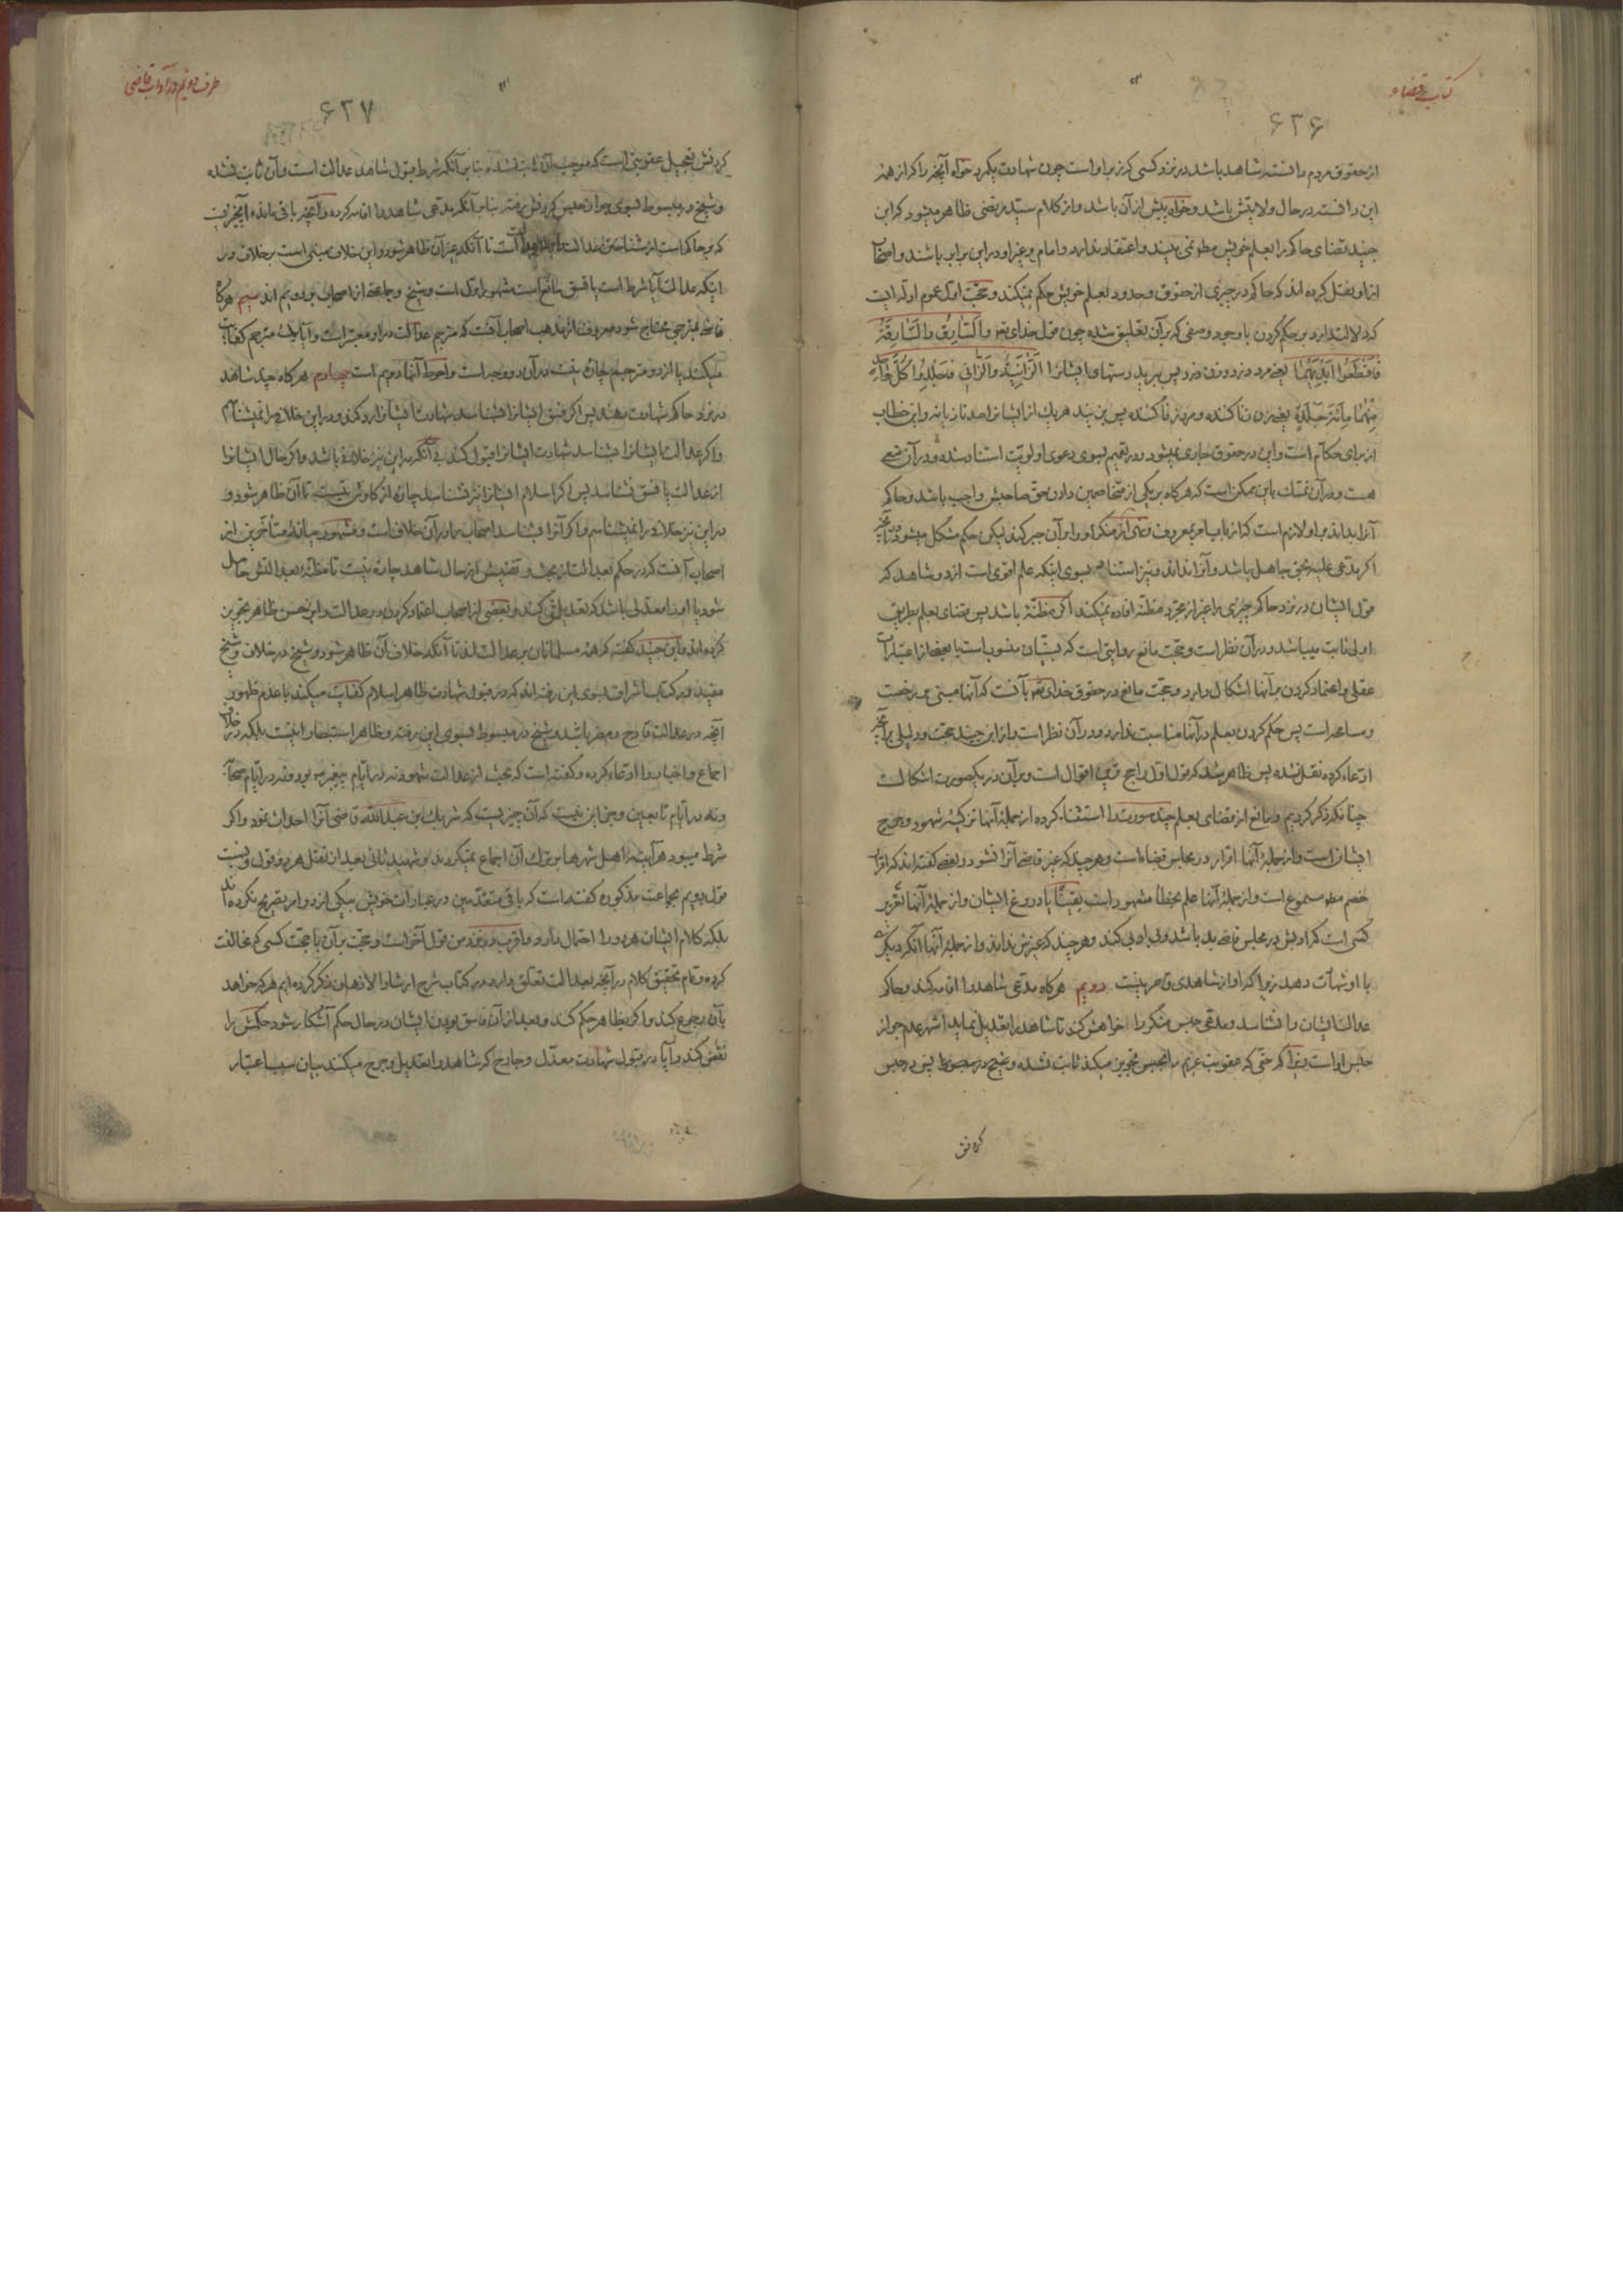 کتاب قضاء
۶۲۶
از حقوق مردم دانسته شاهد باشد در نزد کسی که زبر او است چون شهادت بگیرد خواه آنچه را که از همه
این دانسته در حال ولایتش باشد و خواه پیش از آن باشد و از کلام سید مرتضی ظاهر میشود که ابن
جنید قضای حاکم را بعلم خویش مطلقا نمی بیند و اعتقاد ندارد و امام و غیر او در این برابر باشند و اصحاب
از او نقل کرده اند که حاکم در چیزی از حقوق و حدود بعلم خویش حکم نمیکند و حجت اول عموم ادله ایست
که دلالت دارد بر حکم کردن با وجود وصفی که بر آن تعلیق شده چون قول خدای تعم والسارق والسارقة
فاقطعوا ایدیهما یعنی مرد دزد و زن دزد پس ببرید دستهای ایشانرا الزانیة والزانی فاجلدوا کل واحد
منهما مائة جلدة یعنی زن زنا کننده و مرد زنا کننده پس بزنید هر یک از ایشانرا صد تازیانه و این خطاب
از برای حکام است و این در حقوق جاری نمیشود و در تعمیم بسوی دعوی اولویت استناد شده و در آن منعی
هست و در آن تمسک باین ممکن است که هر کاه بر یکی از متخاصمین دادن حق صاحبش واجب باشد و حاکم
آنرا بداند بر او لازم است که از باب امر بمعروف و نهی از منکر او را بر آن جبر کند لیکن حکم مشکل میشود در آنچه
اگر مدعی علیه بحق جاهل باشد و آنرا نداند و نیز استناد بسوی اینکه علم اقوی است از دو شاهد که
قول ایشان در نزد حاکم چیزی را غیر از مجرد مظنه افاده نمیکند اگر مظنه باشد پس قضای بعلم بطریق
اولی ثابت میباشد و در آن نظر است و حجت مانع روایتی است که بسنیان منسوب است یا بعضی از اعتبارات
عقلی و اعتماد کردن بر آنها اشکال دارد و حجت مانع در حقوق خدای تعم بآنست که آنها مبنی بر رخصت
و مسامحه است پس حکم کردن بعلم در آنها مناسبت ندارد و در آن نظر است و از ابن جنید حجت و دلیلی بر آنچه
ادعاء کرده نقل نشده پس ظاهر شد که قول اول راجح ترین اقوال است و بر آن در یکصورت اشکالست
چنانکه ذکر کردیم و مانع از قضای بعلم چند صورت را استثناء کرده از جمله آنها تزکیه شهود و جرح
ایشان است و از جمله آنها اقرار در مجلس قضاء است و هر چند که غیر قاضی آنرا نشنود و بعضی گفته اند که اقرار
خصم مطلقا مسموع است و از جمله آنها علم بخطاء شهود است یقینا یا دروغ ایشان و از جمله آنها تعزیر
کسی است که ادبش در مجلس قاضی بد باشد و بی ادبی کند و هر چند که غیرش نداند و از جمله آنها آنکه دیگری
با او شهادت دهد زیرا که او از شاهدی قاصر نیست دویم هر کاه مدعی شاهد را اقامه کند و حاکم
عدالت ایشان را نشناسد و مدعی حبس منکر را خواهش کند تا شاهد را تعدیل نماید اشهر عدم جواز
حبس او است زیرا که حقی که عقوبت غریم را بحبس تجویز میکند ثابت نشده و شیخ در مبسوط پس در حبس
کردنش
طرف دویم در آداب قاضی
۶۲۷
کردنش تعجیل عقوبتی است که موجب آن ثابت نشده بنا بر آنکه شرط قبول شاهد عدالت است و آن ثابت نشده
و شیخ در مبسوط بسوی جواز حبس کردنش رفته بنا بر آنکه مدعی شاهد را اقامه کرده و آنچه باقی مانده آنچیزیست
که بر حاکم است از شناختن عدالت و اصل عدالت است تا آنکه غیر آن ظاهر شود و این خلاف مبنی است بر خلاف در
اینکه عدالت آیا شرط است یا فسق مانع است مشهور اول است و شیخ و جماعتی از اصحاب بر دویم اند سیم هرگاه
قاضی بمترجمی محتاج شود معروف از مذهب اصحاب آنست که مترجم عدالت در او معتبر است و آیا یک مترجم کفایت
میکند یا از دو مترجم چاره نیست در آن دو وجه است و احوط آنها دویم است چهارم هر کاه چند شاهد
در نزد حاکم شهادت بدهند پس اگر فسق ایشانرا بشناسد شهادت ایشانرا رد کند و در این خلافی را نمیشناسم
و اگر عدالت ایشانرا بشناسد شهادت ایشانرا قبول کند بی آنکه در این نیز خلافی باشد و اگر حال ایشانرا
از عدالت یا فسق نشناسد پس اگر اسلام ایشانرا نیز نشناسد چاره از کاوش نیست تا آن ظاهر شود و
در این نیز خلافی را نمیشناسم و اگر آنرا بشناسد اصحاب ما در آن خلاف است و مشهور میانه متأخرین از
اصحاب آنست که در حکم بعدالت از بحث و تفتیش از حال شاهد چاره نیست تا مظنه بعدالتش حاصل
شود یا او را معدلی باشد که تعدیلش کند و بعضی از اصحاب اعتماد کردن در عدالت را بر حسن ظاهر تجویز
کرده اند و ابن جنید گفته که همه مسلمانان بر عدالت اند تا آنکه خلاف آن ظاهر شود و شیخ در خلاف و شیخ
مفید در کتاب اشراف بسوی این رفته اند که در قبول شهادت ظاهر اسلام کفایت میکند با عدم ظهور
آنچه در عدالت قادح و مضر باشد و شیخ در مبسوط بسوی این رفته و ظاهر استبصار اینست بلکه در خلاف
اجماع و اخبار را ادعاء کرده و گفته است که بحث از عدالت شهود نه در ایام پیغمبر ص بود و نه در ایام صحابه
و نه در ایام تابعین و جز این نیست که آن چیزیست که شریک بن عبدالله قاضی آنرا احداث نمود و اگر
شرط میبود هر آینه اهل شهرها بر ترک آن اجماع نمیکردند و شهید ثانی بعد از نقل هر دو قول و نسبت
قول دویم بجماعت مذکوره گفته است که باقی متقدمین در عبارات خویش بیکی از دو امر تصریح نکرده اند
بلکه کلام ایشان هر دو را احتمال دارد و اقرب در نزد من قول آخر است و حجت بر آن با حجت کسی که مخالفت
کرده و تمام تحقیق کلام در آنچه بعدالت تعلق دارد در کتاب شرح ارشاد الاذهان ذکر کرده ایم هر که خواهد
بآن رجوع کند و اگر بظاهر حکم کند و بعد از آن فاسق بودن ایشان در حال حکم آشکار شود حکمش را
نقض کند و آیا در قبول شهادت معدل و جارح که شاهد را تعدیل و جرح میکند بیان سبب اعتبار